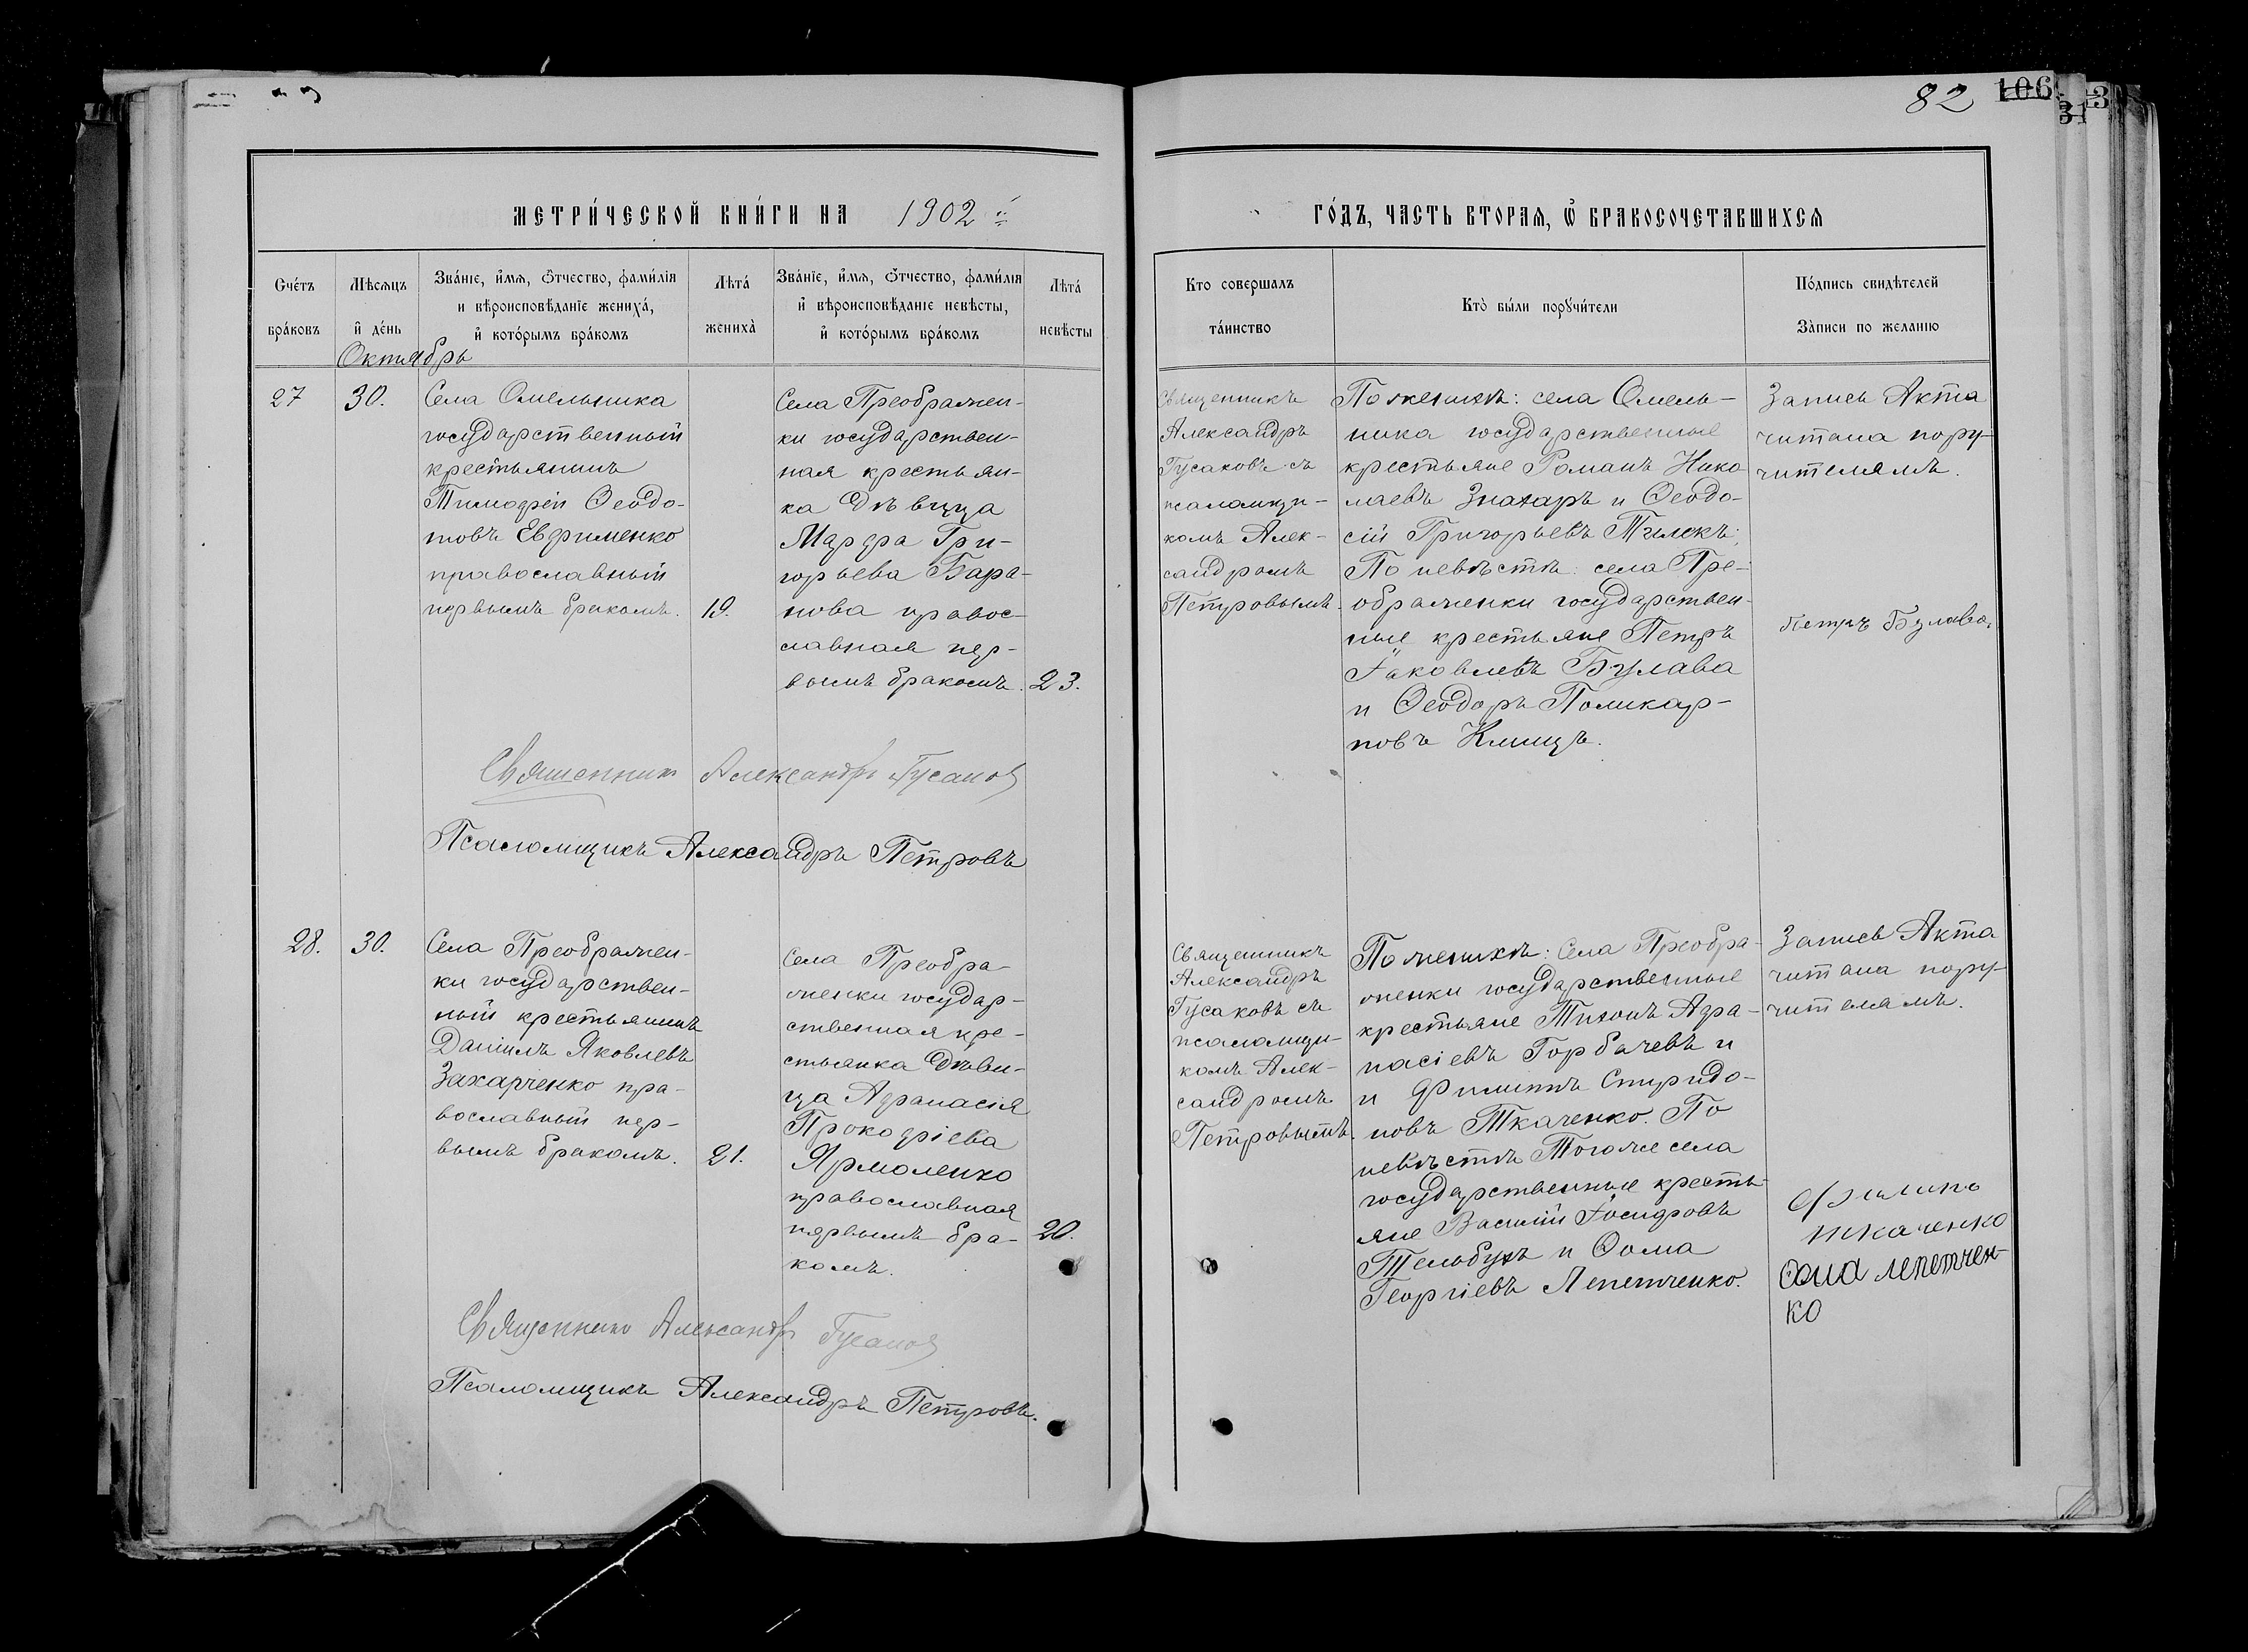 82 106
31 3
МЕТРИ́ЧЕСКОЙ КНИ́ГИ НА 1902 й
ГО́ДЪ, ЧАСТЬ ВТОРАѦ, Ѡ҆ БРАКОСОЧЕТАВШИХСѦ
Сче́тъ
бра́ковъ
Мѣсѧцъ
и҆ де́нь
Зва́нїе, и҆́мѧ, ѻ҆́тчество, фами́лїѧ
и вѣроисповѣ́данїе жениха́,
и҆ кото́рымъ бра́комъ
Лѣта́
жениха̀
Зва́нїе, и҆́мѧ, ѻ҆́тчество, фами́лїѧ
и҆ вѣроисповѣ́данїе невѣ́сты,
и҆ кото́рымъ бра́комъ
Лѣта́
невѣ́сты
Кто совершалъ
та́инство
Кто̀ бы́ли порꙋчи́тели
По́дпись свидѣ́телей
За̀писи по желанїю
Октябрь
27
30.
Села Омельника
государственный
крестьянинъ
Тимофей Ѳеодо-
товъ Евфименко
православный
первымъ бракомъ.
19.
Села Преображен-
ки государствен-
ная крестьян-
ка дѣвица
Марфа Гри-
горьева Бара-
нова правос-
лавная пер-
вымъ бракомъ.
23.
Священникъ
Александръ
Гусаковъ съ
псаломщи-
комъ Алек-
сандромъ
Петровымъ.
По женихѣ: села Омель-
ника государственные
крестьяне Романъ Нико
лаевъ Знахарь и Ѳеодо-
сій Григорьевъ Тилекъ;
По невѣстѣ: села Пре-
ображенки государствен-
ные крестьяне Петръ
Іаковлевъ Булава
и Ѳеодоръ Поликар-
повъ Клищъ.
Запись Акта
читана пору-
чителямъ.
Петръ Булава.
Священникъ Александръ Гусаковъ
Псаломщикъ Александръ Петровъ
28.
30.
Села Преображен-
ки государствен-
ный крестьянинъ
Даніилъ Яковлевъ
Захарченко пра-
вославный пер-
вымъ бракомъ.
21.
Села Преобра-
женки государ-
ственная кре-
стьянка дѣви-
ца Афанасія
Прокофіева
Ярмоленко
православная
первымъ бра-
комъ.
20.
Священникъ
Александръ
Гусаковъ съ
псаломщи-
комъ Алек-
сандромъ
Петровымъ.
По женихѣ: Села Преобра-
женки государственные
крестьяне Тихонъ Афа-
насіевъ Горбачевъ и
и Филиппъ Спиридо-
новъ Ткаченко. По
невѣстѣ Того же села
государственные кресть-
яне Василій Іосифовъ
Тельбухъ и Ѳома
Георгіевъ Лепетченко.
Запись Акта
читана пору-
чителямъ.
Филипъ
ткаченко
Ѳома лепетчен-
ко
Священникъ Александръ Гусаковъ
Псаломщикъ Александръ Петровъ.